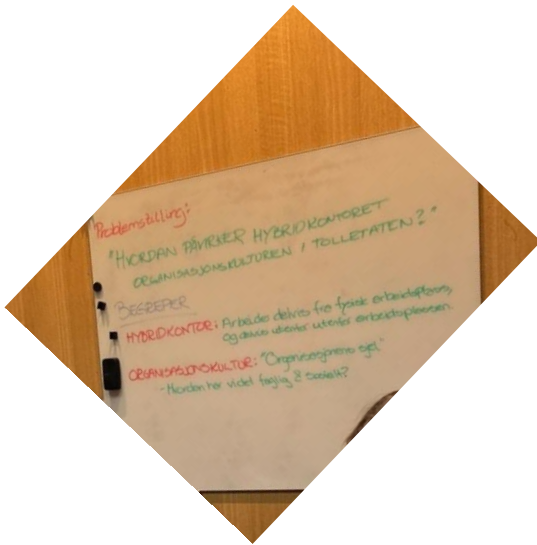 Problemstilling:
"HVORDAN PÅVIRKER HYBRIDKONTORET
ORGANISASJONSKULTUREN I TOLLETATEN?"
BEGREPER
HYBRIDKONTOR: Arbeide delvis fra fysisk arbeidsplass,
og delvis utenfor arbeidsplassen
ORGANISASJONSKULTUR: "Organisasjonens sjel"
- Hvordan har vi det faglig & sosialt?